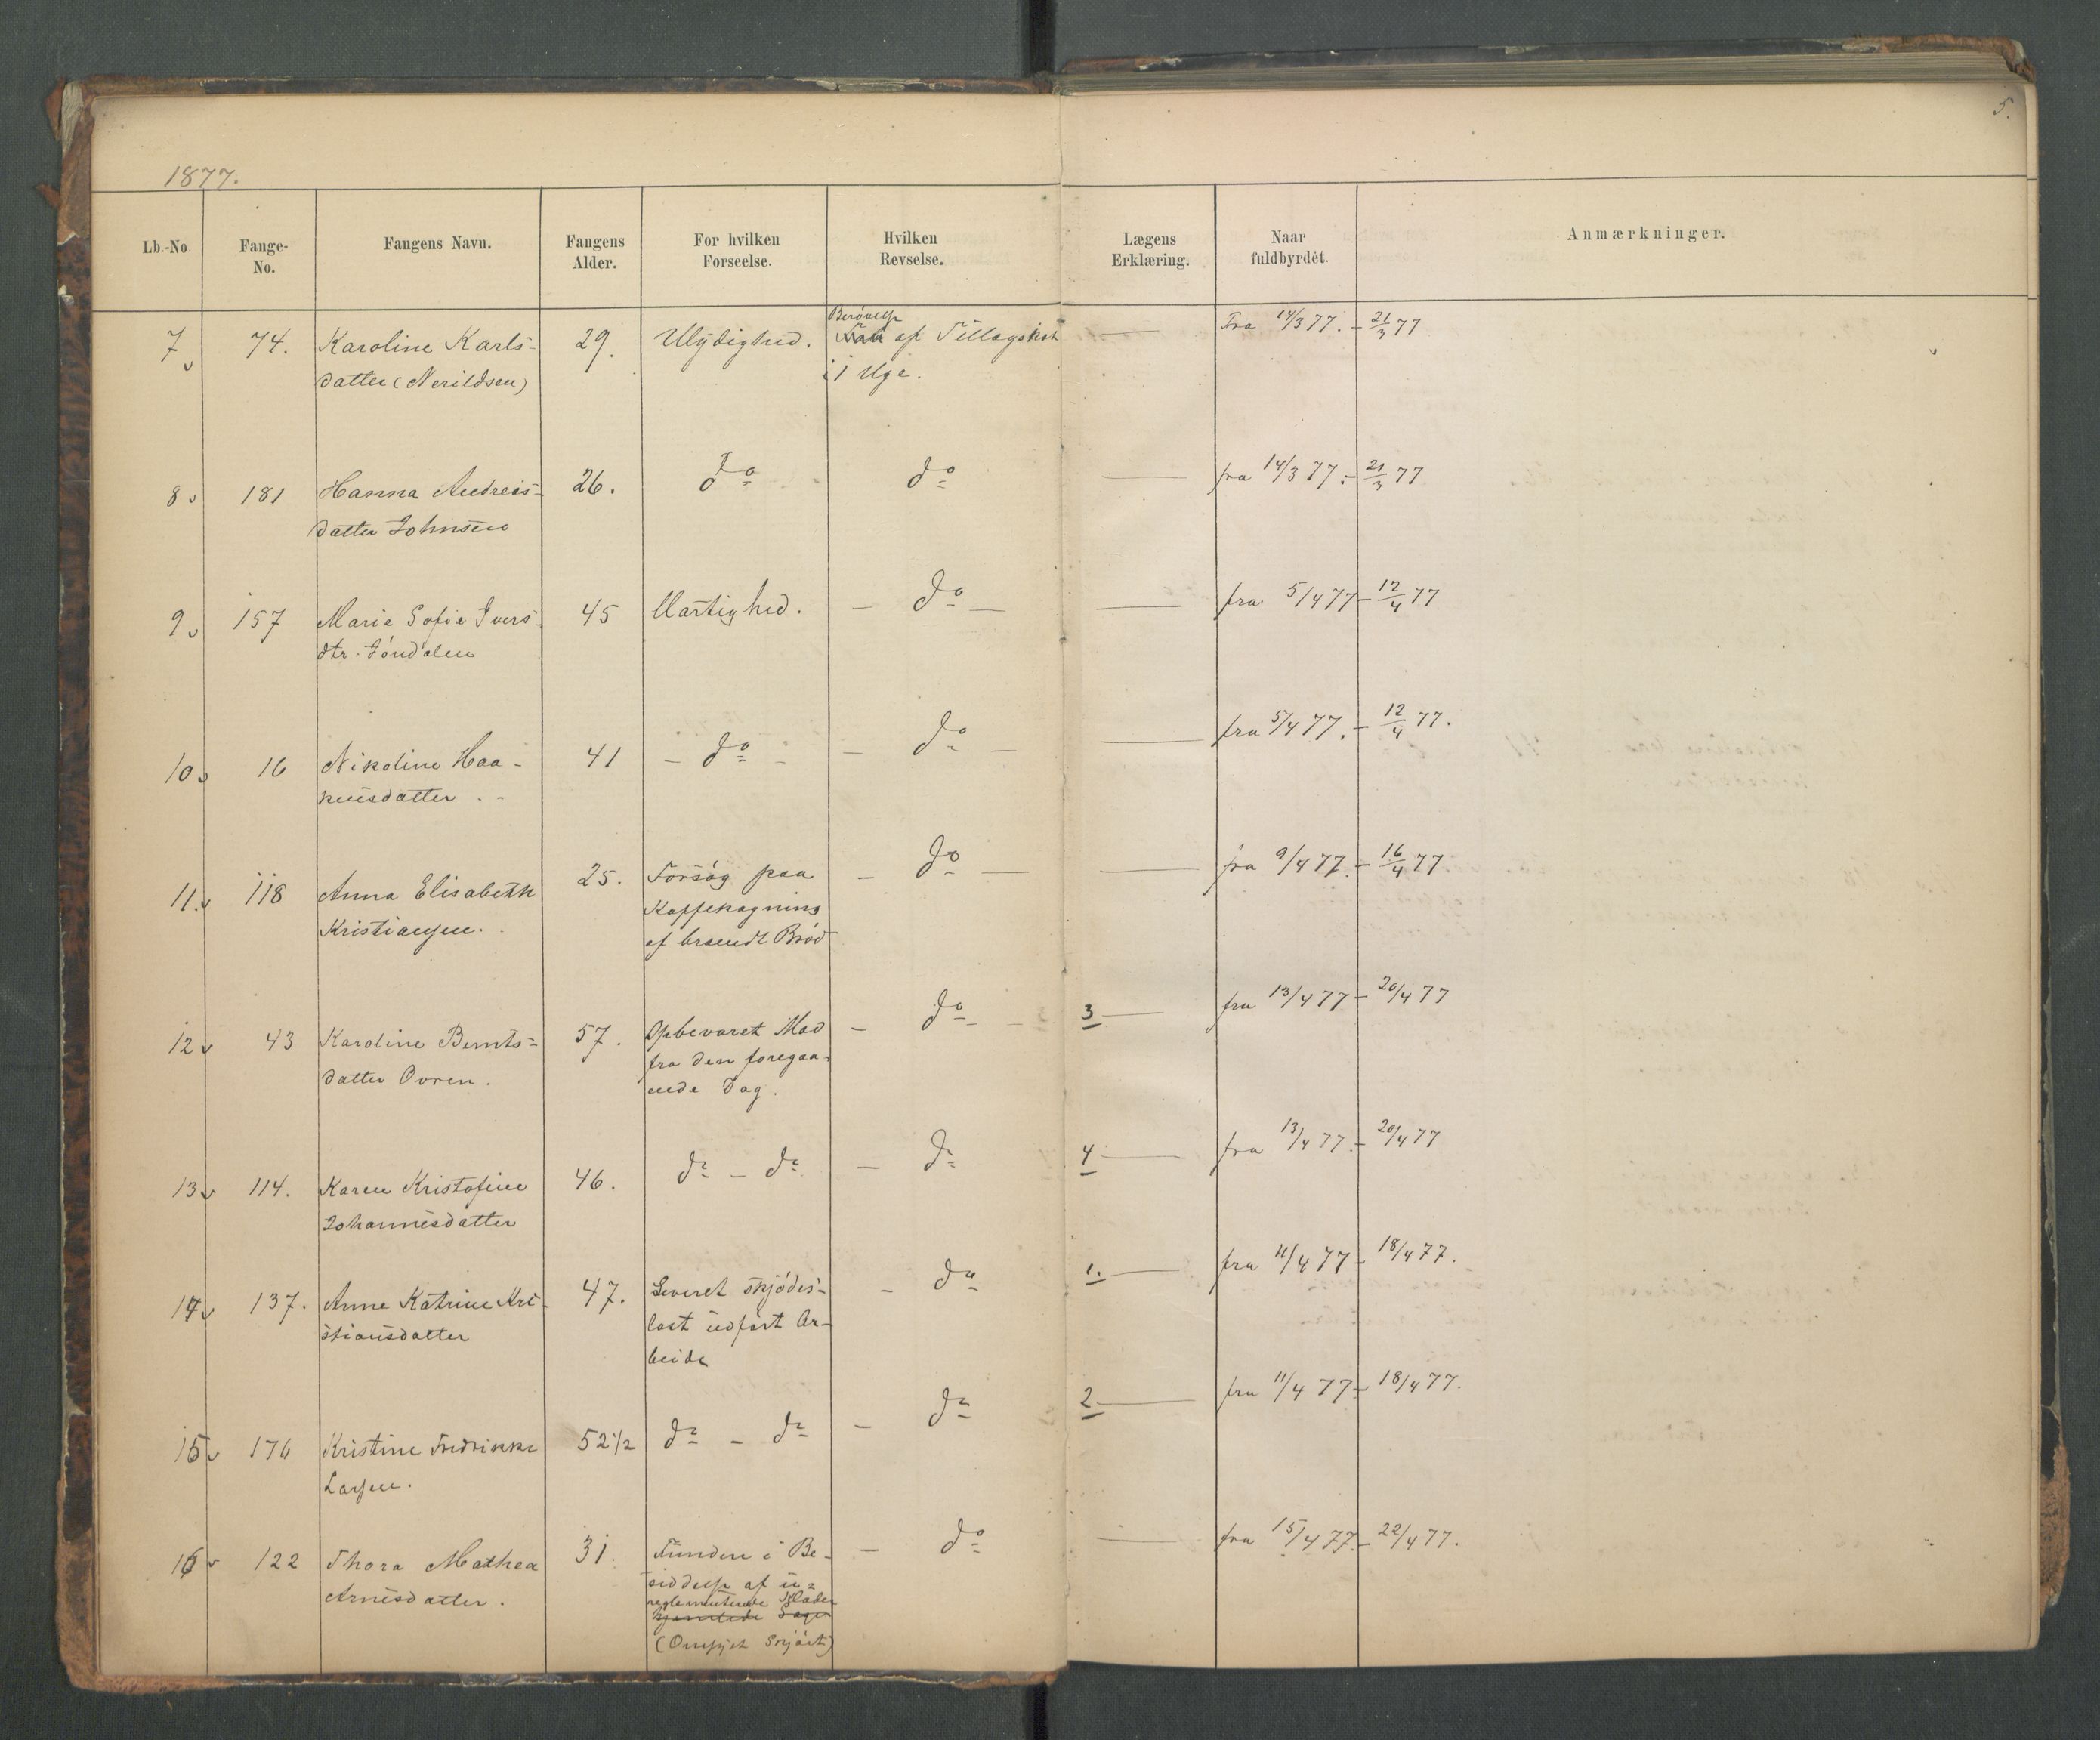 5.
1877.
Lb.-No. Fange-No. Fangens Navn. Fangens Alder. For hvilken Forseelse. Hvilken Revselse. Lægens Erklæring. Naar fuldbyrdet. Anmærkninger.
7 74. Karoline Karls- 29. Ulydighed. Berøvelse af Tillægskost — Fra 14/3 77. - 21/3 77
datter (Nerildsen) i 1 Uge.
8 181 Hanna Andreas- 26. do do — fra 14/3 77. - 21/3 77
datter Johnsen
9 157 Marie Sofie Ivers- 45 Uartighed. — do — — fra 5/4 77 - 12/4 77
dtr.
10 16 Nikoline Haa- 41 - do - — do — — fra 5/4 77. - 12/4 77.
kensdatter
11. 118 Anna Elisabeth 25. Forsøg paa — do — — fra 9/4 77. - 16/4 77
Kristiansen. Kaffekogning
af brændt Brød
12 43 Karoline Bernts- 57. Opbevaret Mad — do — 3 — fra 13/4 77 - 20/4 77
datter Ovren. fra den foregaa-
ende Dag.
13 114. Karen Kristofine 46. do - do — do 4 — fra 13/4 77. - 20/4 77
Johannesdatter
14 137. Anne Katrine Kri- 47. Leveret skjødes- - do 1. — fra 11/4 77 - 18/4 77.
stiansdatter løst udført Ar-
beide
15 176 Kristine Fredrikke 52 1/2 do - do — do 2 — fra 11/4 77. - 18/4 77.
Larsen.
16 122 Thora Mathea 31. Funden i Be- — do — fra 15/4 77. - 22/4 77.
Arnesdatter. siddelse af u-
reglementerede Klæder
(Omsyet Skjørt)